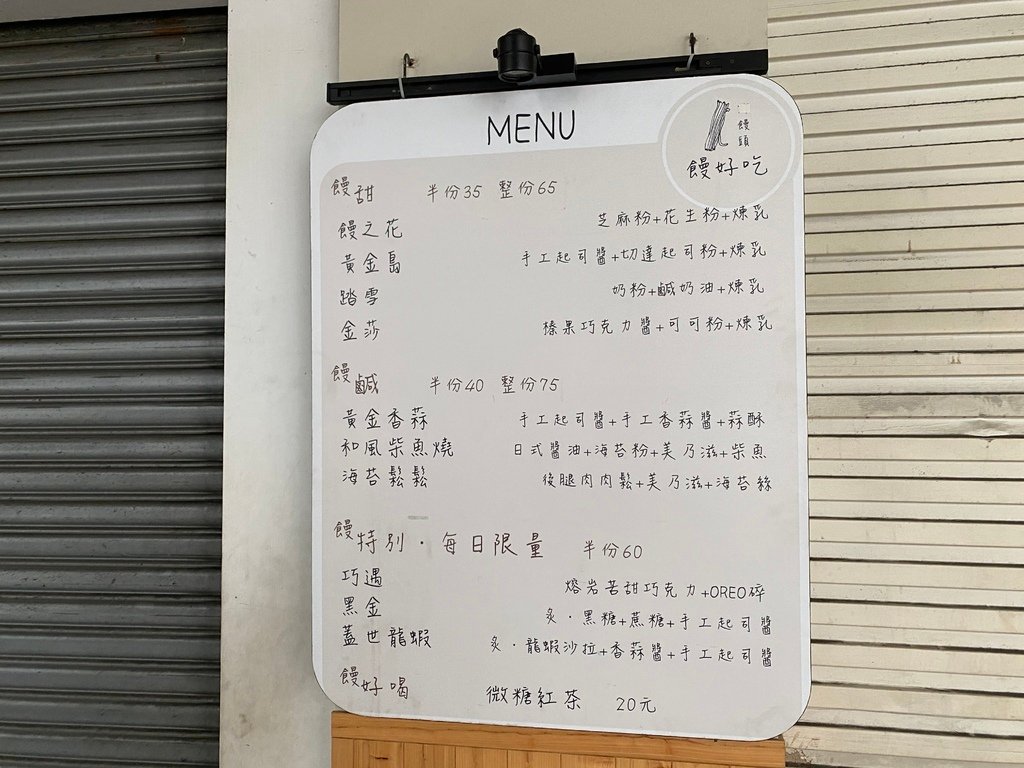 MENU
饅頭
饅好吃
饅甜 半份35 整份65
饅之花 芝麻粉+花生粉+煉乳
黃金島 手工起司醬+切達起司粉+煉乳
踏雪 奶粉+鹹奶油+煉乳
金莎 榛果巧克力醬+可可粉+煉乳
饅鹹 半份40 整份75
黃金香蒜 手工起司醬+手工香蒜醬+蒜酥
和風柴魚燒 日式醬油+海苔粉+美乃滋+柴魚
海苔鬆鬆 後腿肉肉鬆+美乃滋+海苔絲
饅特別·每日限量 半份60
巧遇 熔岩苦甜巧克力+OREO碎
黑金 炙·黑糖+蔗糖+手工起司醬
蓋世龍蝦 炙·龍蝦沙拉+香蒜醬+手工起司醬
饅好喝 微糖紅茶 20元